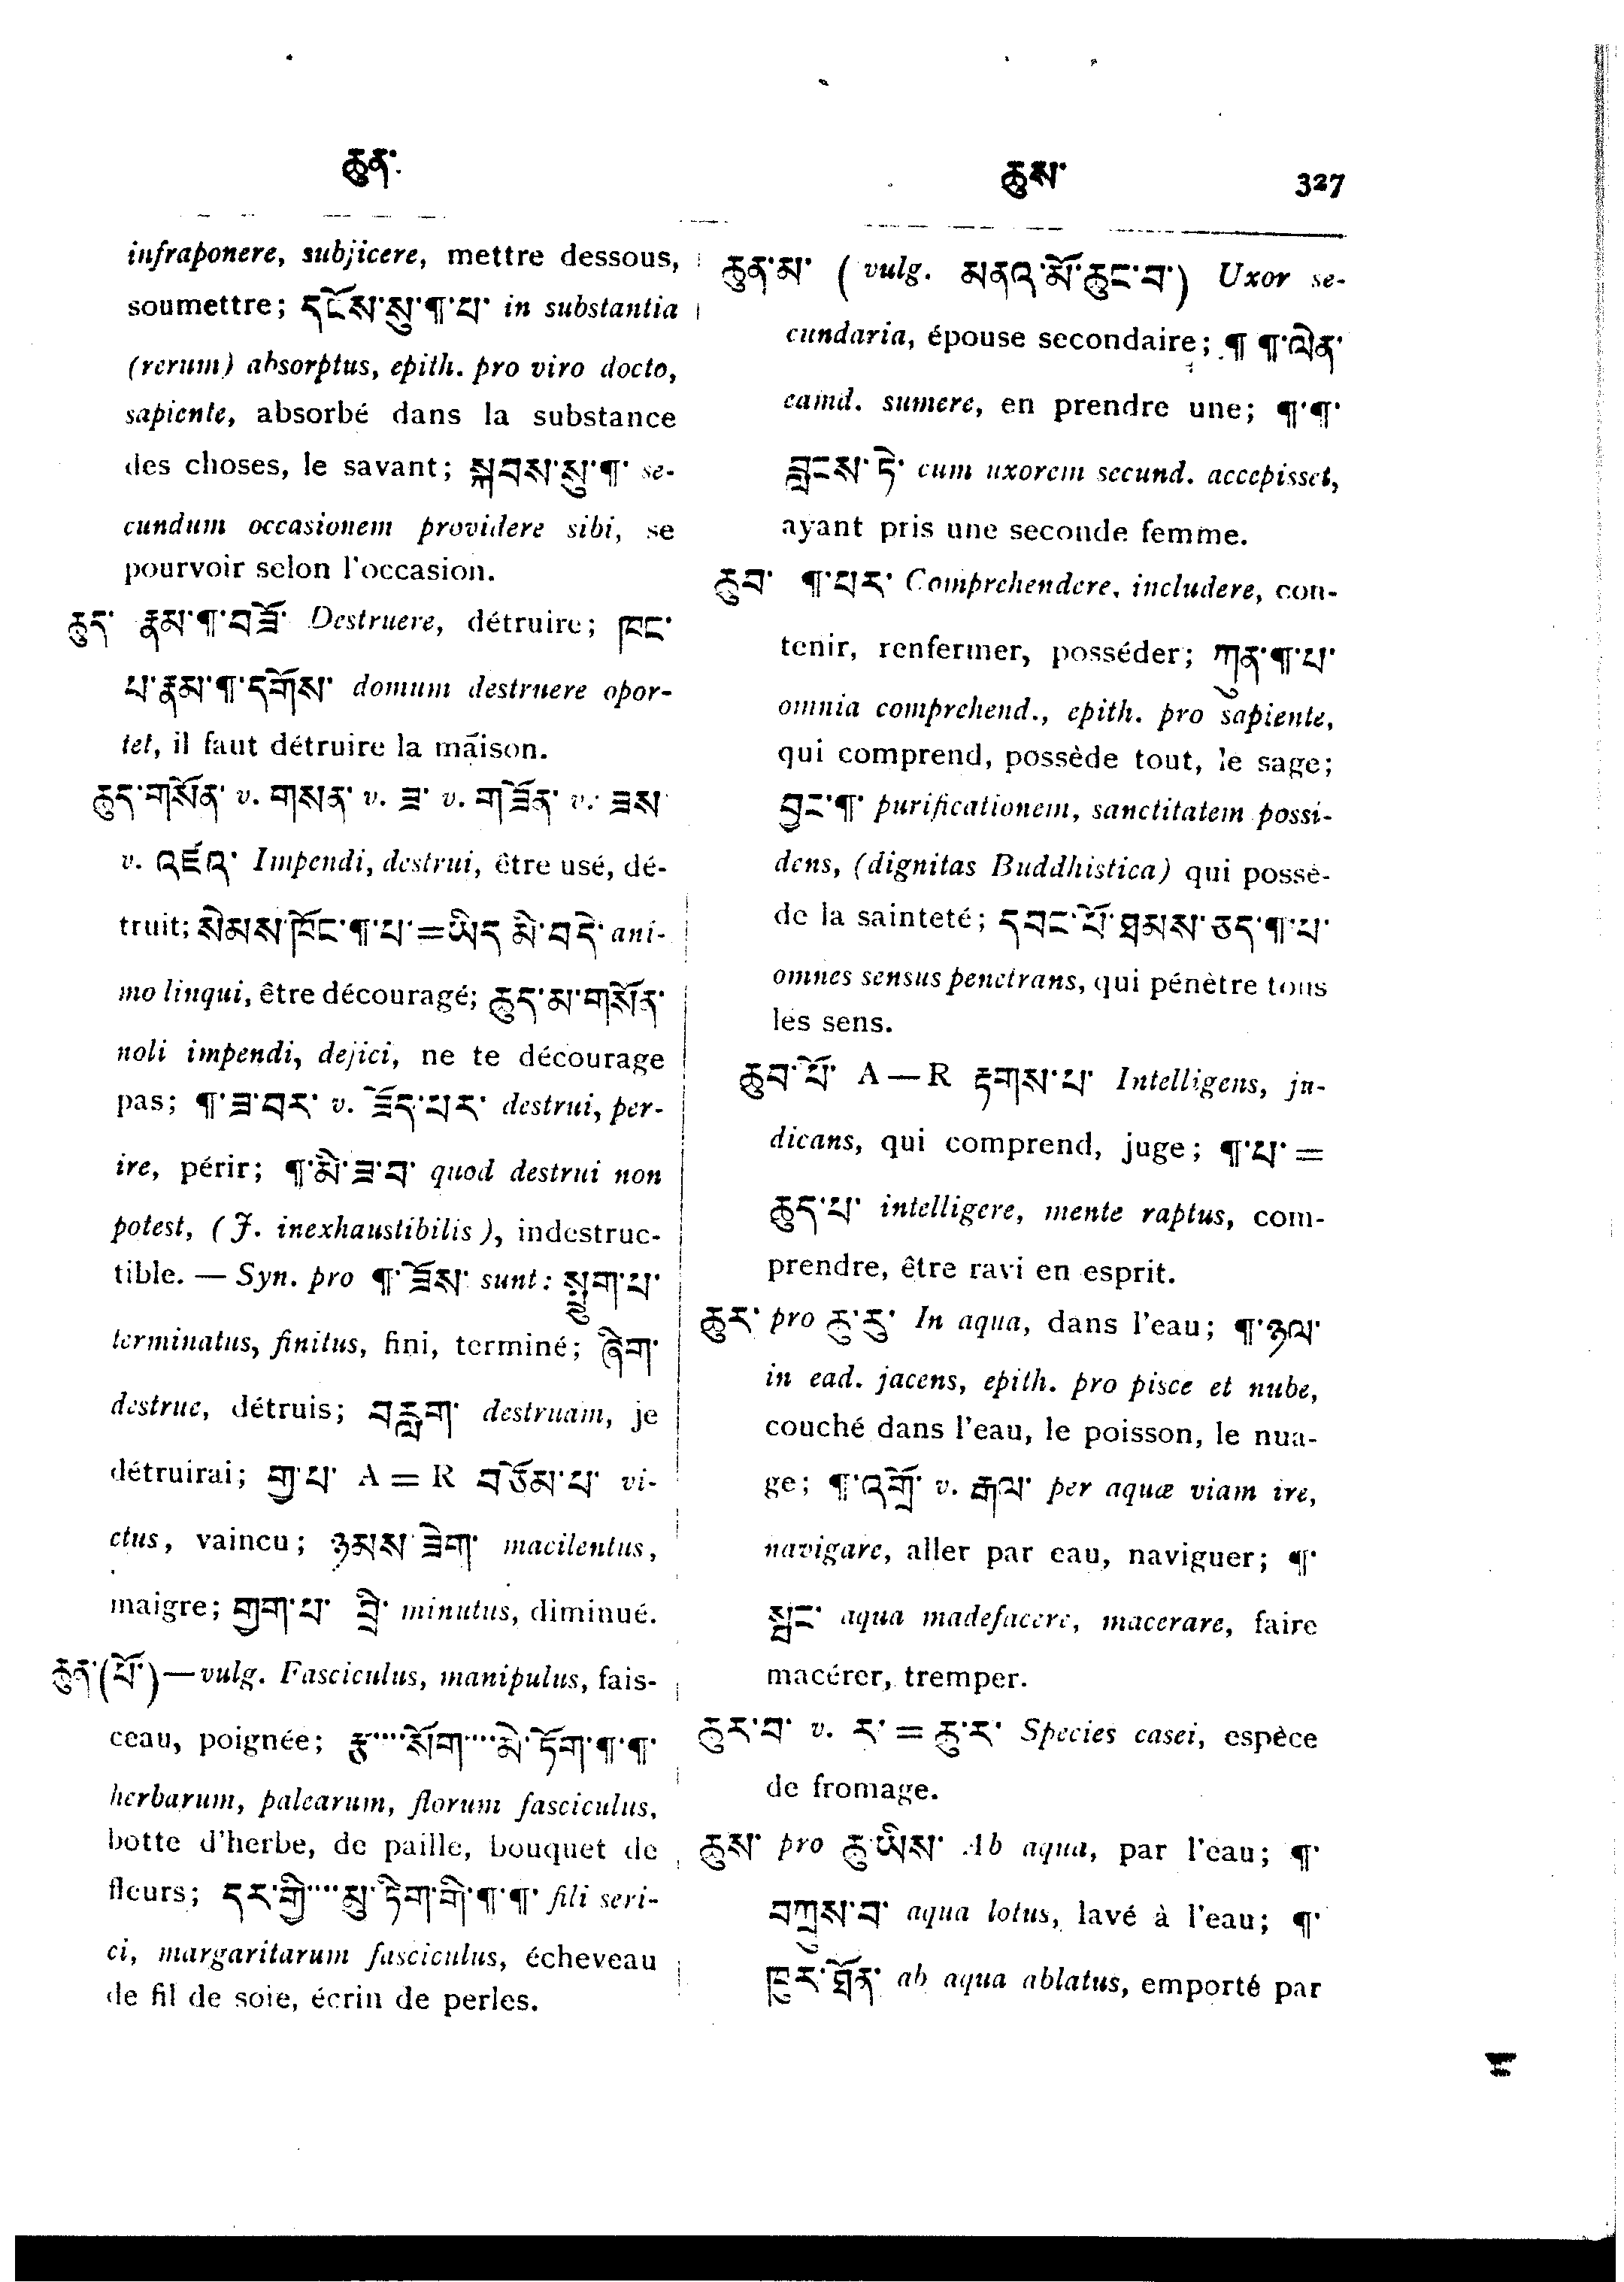 ཆུན་
ཆུས་ 327
infraponere, subjicere, mettre dessous,
soumettre; དངོས་སུ་¶་པ་ in substantia
(rerum) absorptus, epith. pro viro docto,
sapiente, absorbé dans la substance
des choses, le savant; སྐབས་སུ་¶་ se-
cundum occasionem providere sibi, se
pourvoir selon l'occasion.
ཆུད་ རྣམ་¶་བཟོ་ Destruere, détruire; ཁང་
པ་རྣམ་¶་དགོས་ domum destruere opor-
tet, il faut détruire la maison.
ཆུད་གསོན་ v. གསན་ v. ཟ་ v. གཟོན་ v. ཟས
v. འཛའ་ Impendi, destrui, être usé, dé-
truit; སེམས་ཁོང་¶་པ་=ཡིད་མི་བདེ་ ani-
mo linqui, être découragé; ཆུད་མ་གསོན་
noli impendi, dejici, ne te décourage
pas; ¶་ཟ་བར་ v. ཟོད་པར་ destrui, per-
ire, périr; ¶་མི་ཟ་བ་ quod destrui non
potest, (J. inexhaustibilis), indestruc-
tible. — Syn. pro ¶་ཟོས་ sunt: སྨུག་པ་
terminatus, finitus, fini, terminé; ཞིག་
destrue, détruis; བརླག་ destruam, je
détruirai; གྱ་པ་ A = R བཅོམ་པ་ vi-
ctus, vaincu; ཉམས་ཟིག་ macilentus,
maigre; གྱག་པ་ བྲི་ minutus, diminué.
ཆུན་(པོ་)—vulg. Fasciculus, manipulus, fais-
ceau, poignée; རྩྭ་····སོག་····མེ་ཏོག་¶་¶་
herbarum, palearum, florum fasciculus,
botte d'herbe, de paille, bouquet de
fleurs; དར་གྱི་····མུ་ཏིག་གི་¶་¶་ fili seri-
ci, margaritarum fasciculus, écheveau
de fil de soie, écrin de perles.
ཆུན་མ་ (vulg. མནའ་མོ་ཆུང་བ་) Uxor se-
cundaria, épouse secondaire; ¶ ¶་ལེན་
eamd. sumere, en prendre une; ¶་¶་
བླངས་ཏེ་ cum uxorem secund. accepisset,
ayant pris une seconde femme.
ཆུབ་ ¶་པར་ Comprehendere, includere, con-
tenir, renfermer, posséder; ཀུན་¶་པ་
omnia comprehend., epith. pro sapiente,
qui comprend, possède tout, le sage;
བྱང་¶་ purificationem, sanctitatem possi-
dens, (dignitas Buddhistica) qui possè-
de la sainteté; དབང་པོ་ཐམས་ཅད་¶་པ་
omnes sensus penetrans, qui pénètre tous
les sens.
ཆུབ་པོ་ A — R རྟགས་པ་ Intelligens, ju-
dicans, qui comprend, juge; ¶་པ་ =
ཆུད་པ་ intelligere, mente raptus, com-
prendre, être ravi en esprit.
ཆུར་ pro ཆུ་རུ་ In aqua, dans l'eau; ¶་ཉལ་
in ead. jacens, epith. pro pisce et nube,
couché dans l'eau, le poisson, le nua-
ge; ¶་འགྲོ་ v. རྒལ་ per aquæ viam ire,
navigare, aller par eau, naviguer; ¶་
སྦང་ aqua madefacere, macerare, faire
macérer, tremper.
ཆུར་བ་ v. ར་ = ཆུ་ར་ Species casei, espèce
de fromage.
ཆུས་ pro ཆུ་ཡིས་ Ab aqua, par l'eau; ¶་
བཀྲུས་བ་ aqua lotus, lavé à l'eau; ¶་
ཁུར་ཐོན་ ab aqua ablatus, emporté par